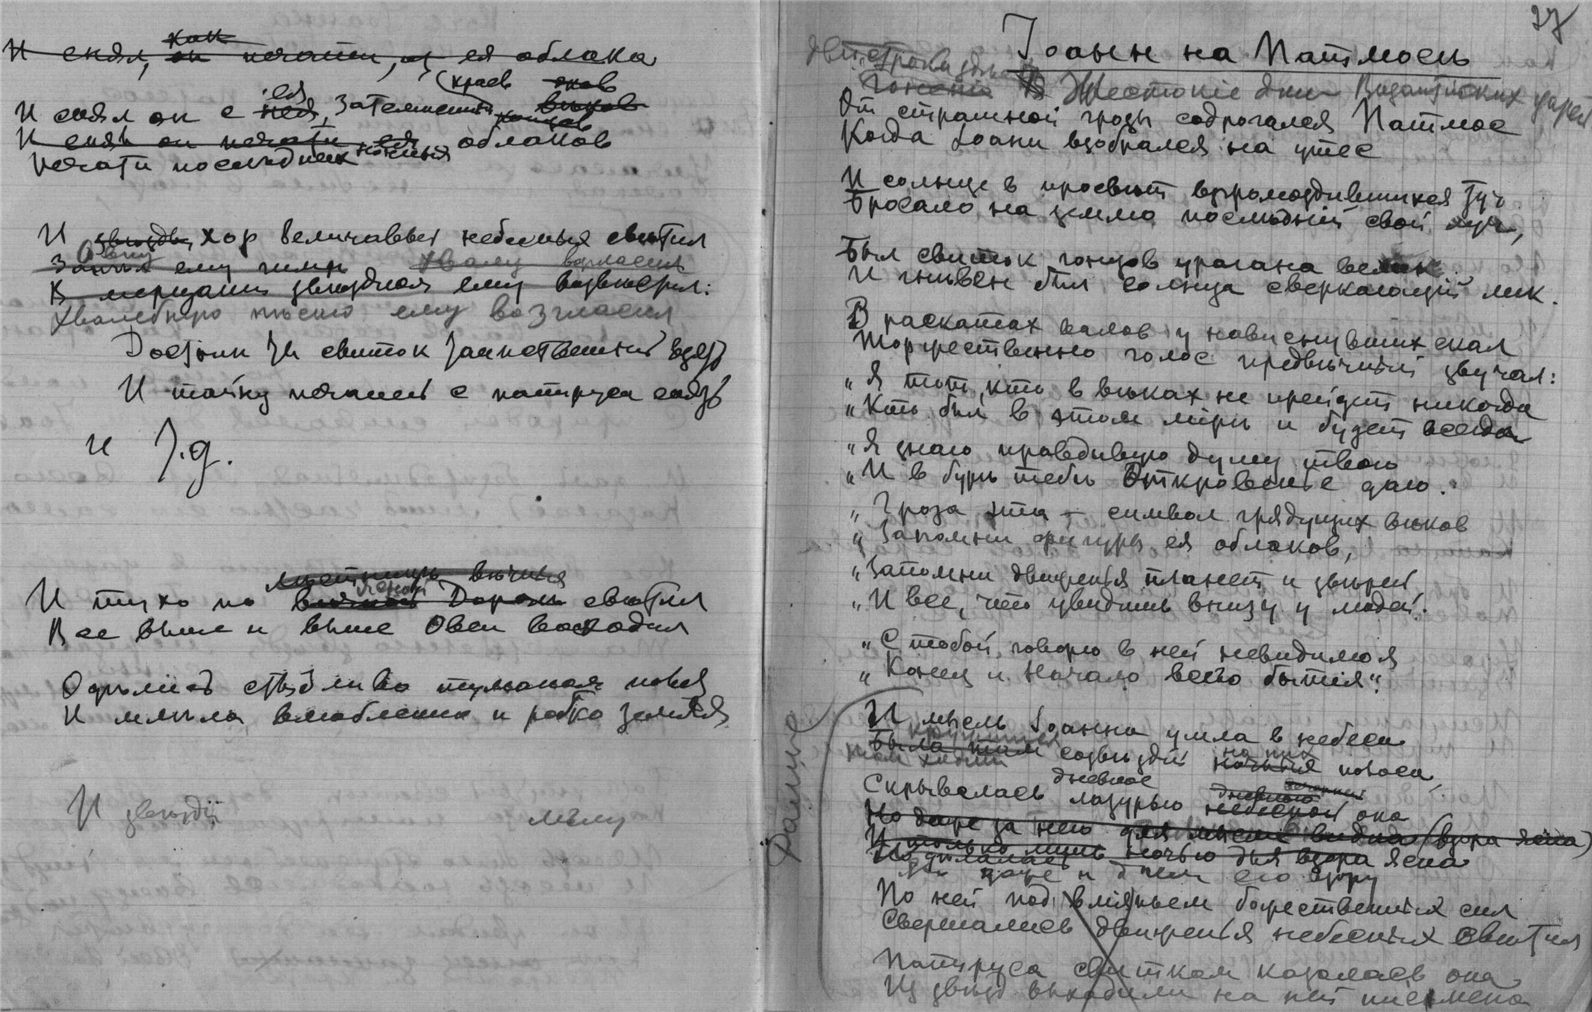 И снял, как он печати, ея облака
И снял он с нея, ея затемненных краев оков
И снял он печати ея облаков
Печати последних
И звезды, хор величавых небесных светил
Запел ему гимн Хвалу возгласил
В мерцании звездном ему возвестил:
Хвалебную песню ему возгласил
Достоин ты свиток таинственный взять
И тайну печатей с папируса снять
и т.д.
лестнице вечных
И тихо по вечной Дороге светил
Все выше и выше Овен восходил
Оделась стыдливо туманом новым
И млела влюбленно и робко земля
И звезды
мглу
27
Іоанн на Патмосе
Жестокіе дни Византійских царей
От страшной грозы содрогался Патмос
Когда Іоанн взобрался на утес
И солнце в просвет взгромоздившихся туч
Бросало на землю последній свой луч,
Был свиток гонцов урагана велик
И гневен был солнца сверкающій лик.
В раскатах валов у нависнувших скал
Торжественно голос предвечный звучал:
„Я тот, кто в веках не прейдет никогда
„Кто был в этом мире и будет всегда
„Я знаю правдивую думу твою
„И в буре тебе Откровенье даю.
„Гроза эта – символ грядущих веков
„Запомни фигуры ея облаков,
„Запомни движенія планет и зверей
„И все, что увидишь внизу у людей.
„С тобой говорю в ней невидимо я
„Конец и Начало всего бытія".
Раньше
И мысль Іоанна ушла в небеса
Была там созвездій ночная полоса,
Скрывалась лазурью дневное небесной она
Но даже за нею для мысли видна (взора ясна)
И только лишь ночью для взора ясна
и днем его взору
По ней под вліяньем божественных сил
Свершались движенія небесных светил
Папируса свитком казалась она
Из звезд выходили на ней письмена